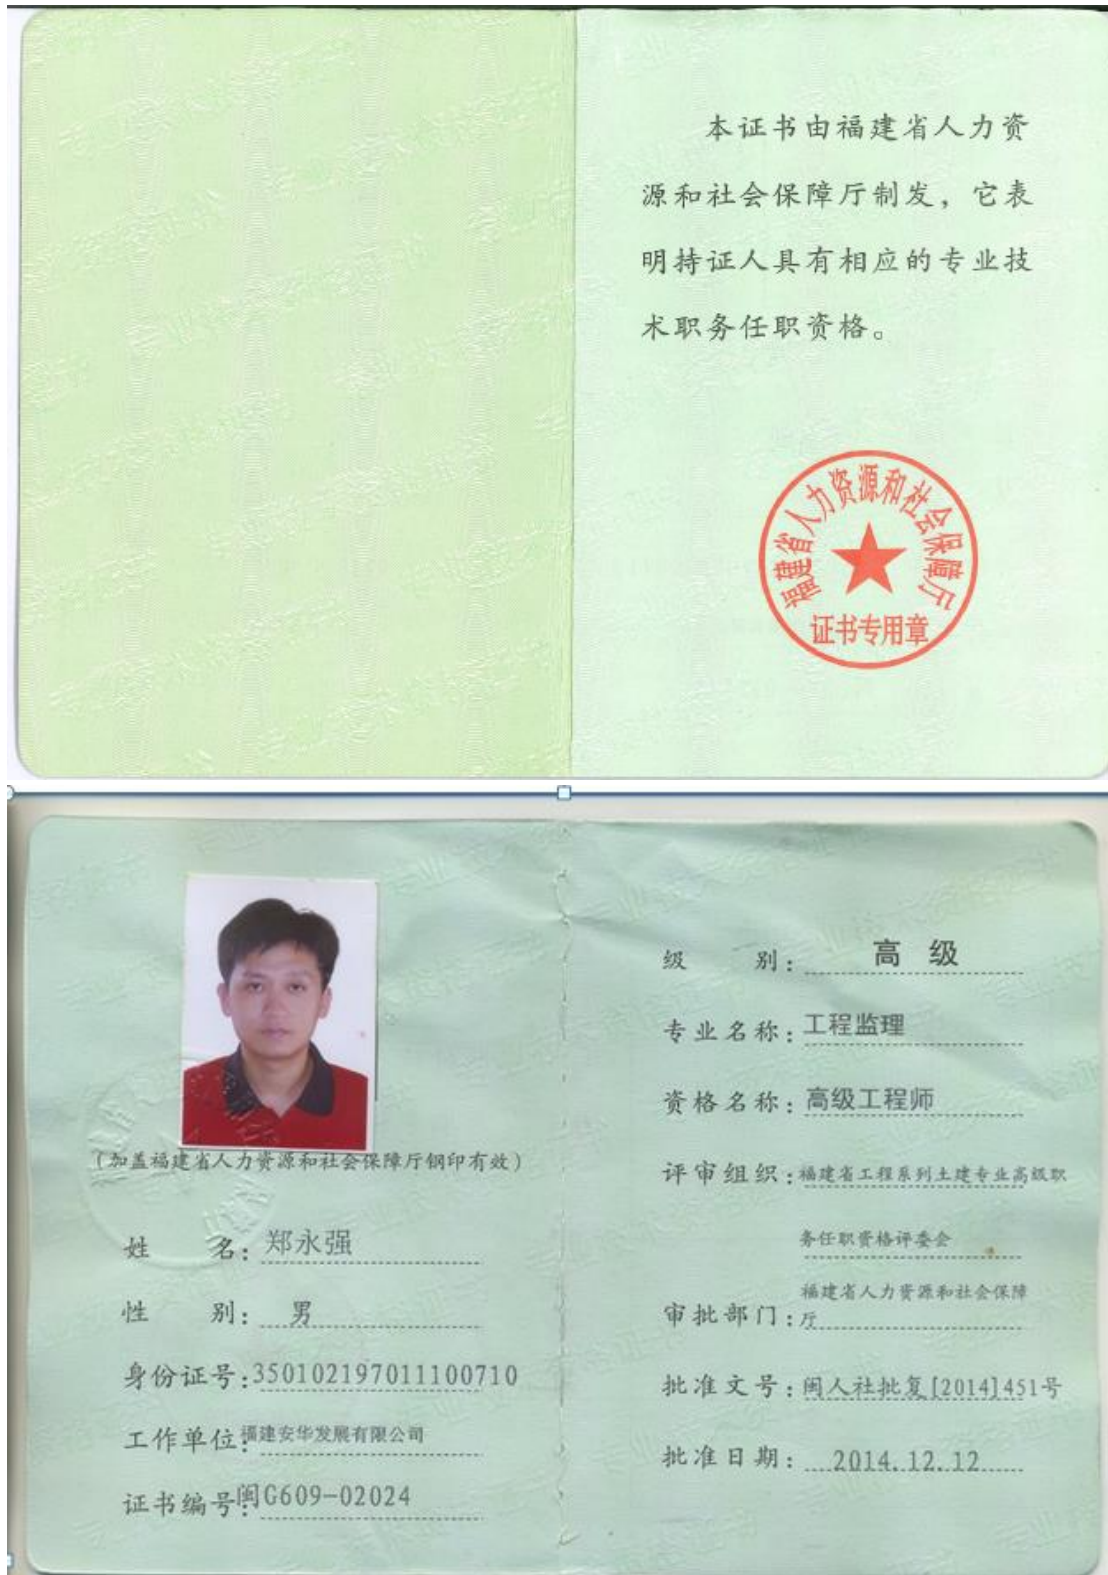 本证书由福建省人力资
源和社会保障厅制发，它表
明持证人具有相应的专业技
术职务任职资格。
福建省人力资源和社会保障厅
证书专用章
（加盖福建省人力资源和社会保障厅钢印有效）
姓 名：郑永强
性 别：男
身份证号：350102197011100710
工作单位：福建安华发展有限公司
证书编号：闽G609-02024
级 别：高 级
专业名称：工程监理
资格名称：高级工程师
评审组织：福建省工程系列土建专业高级职
务任职资格评委会
福建省人力资源和社会保障
审批部门：厅
批准文号：闽人社批复[2014]451号
批准日期：2014.12.12